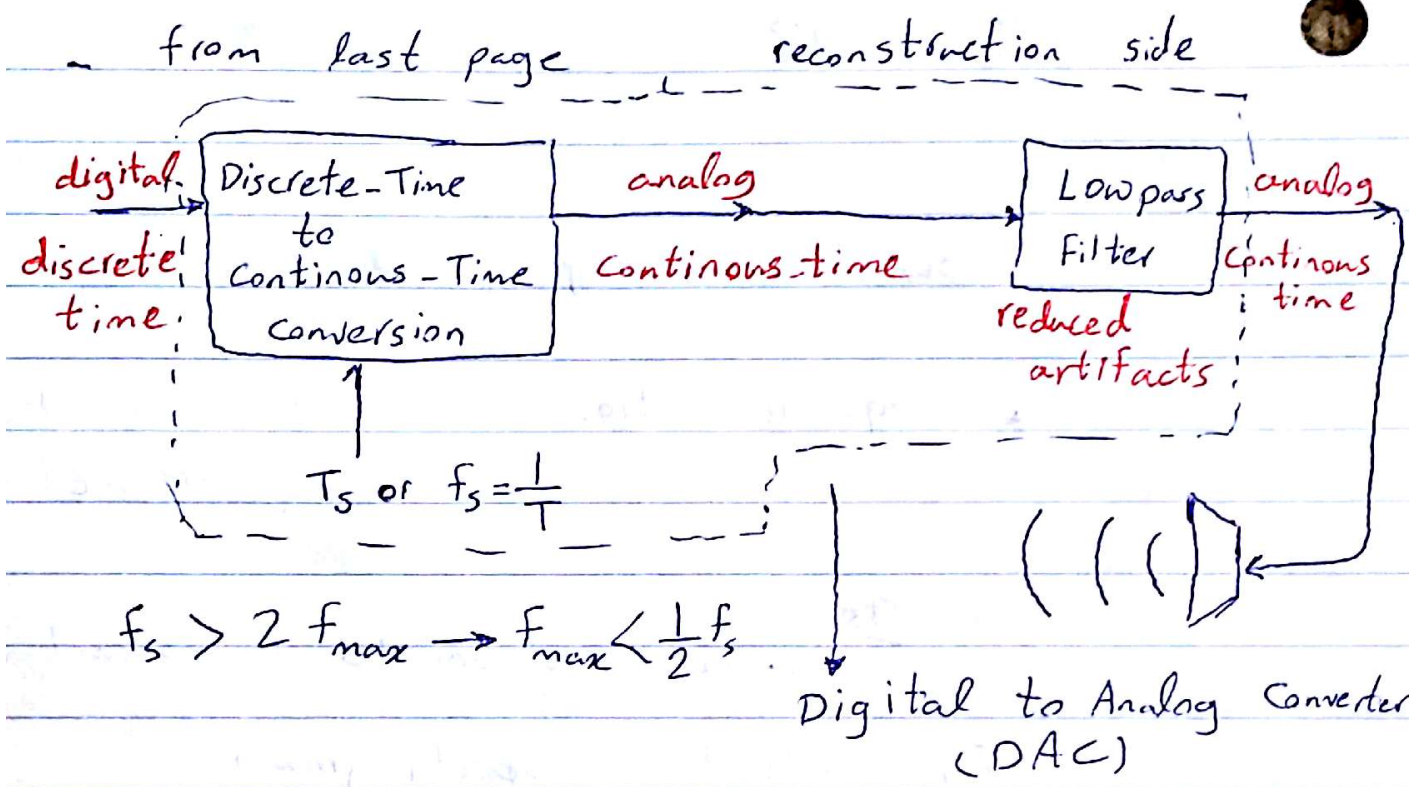 - from last page
reconstruction side
digital
discrete
time
Discrete-Time
to
Continous-Time
Conversion
analog
continous-time
Lowpass
Filter
reduced
artifacts
analog
continous
time
Ts or fs = 1/T
fs > 2 fmax → fmax < 1/2 fs
Digital to Analog Converter
(DAC)